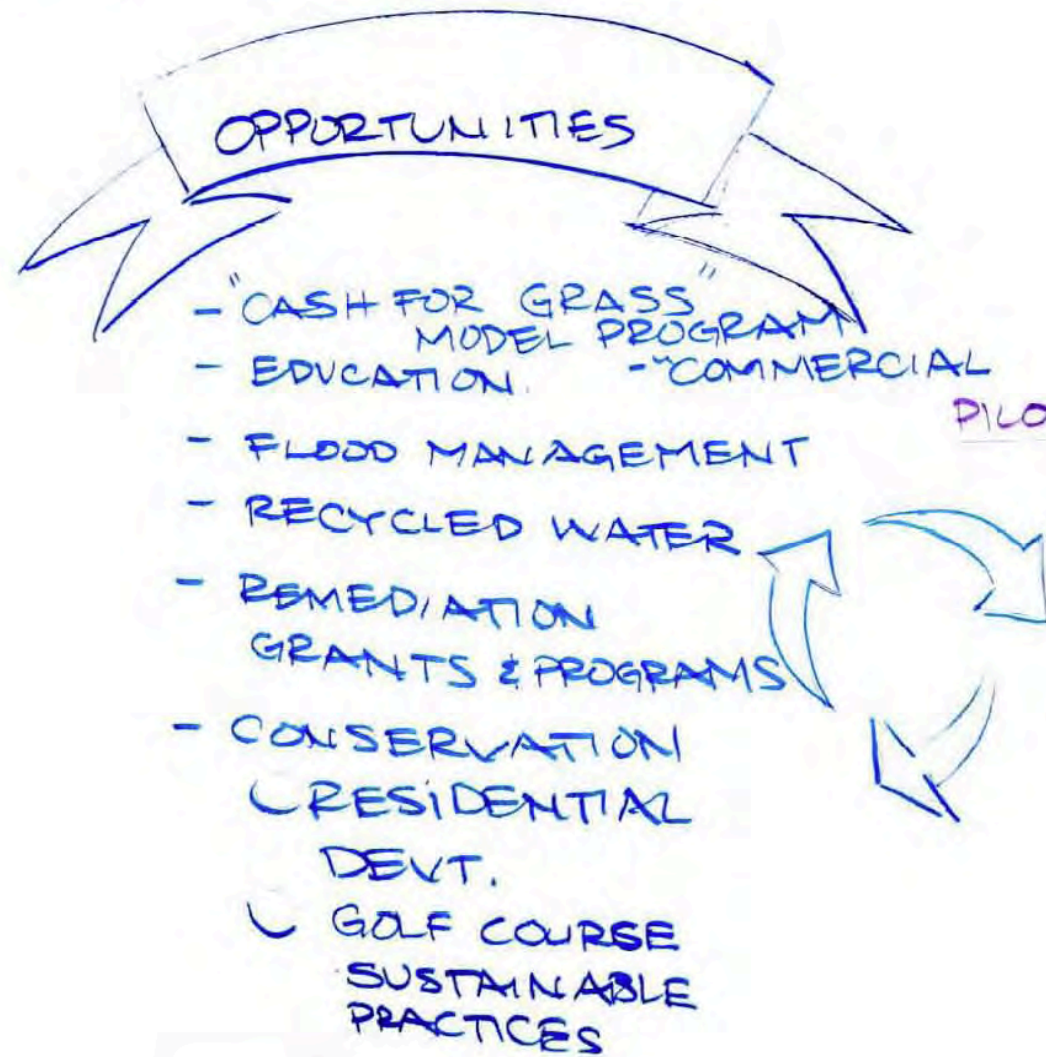 OPPORTUNITIES
- "CASH FOR GRASS"
MODEL PROGRAM
- EDUCATION. - "COMMERCIAL
PILO
- FLOOD MANAGEMENT
- RECYCLED WATER
- REMEDIATION
GRANTS & PROGRAMS
- CONSERVATION
RESIDENTIAL
DEVT.
GOLF COURSE
SUSTAINABLE
PRACTICES